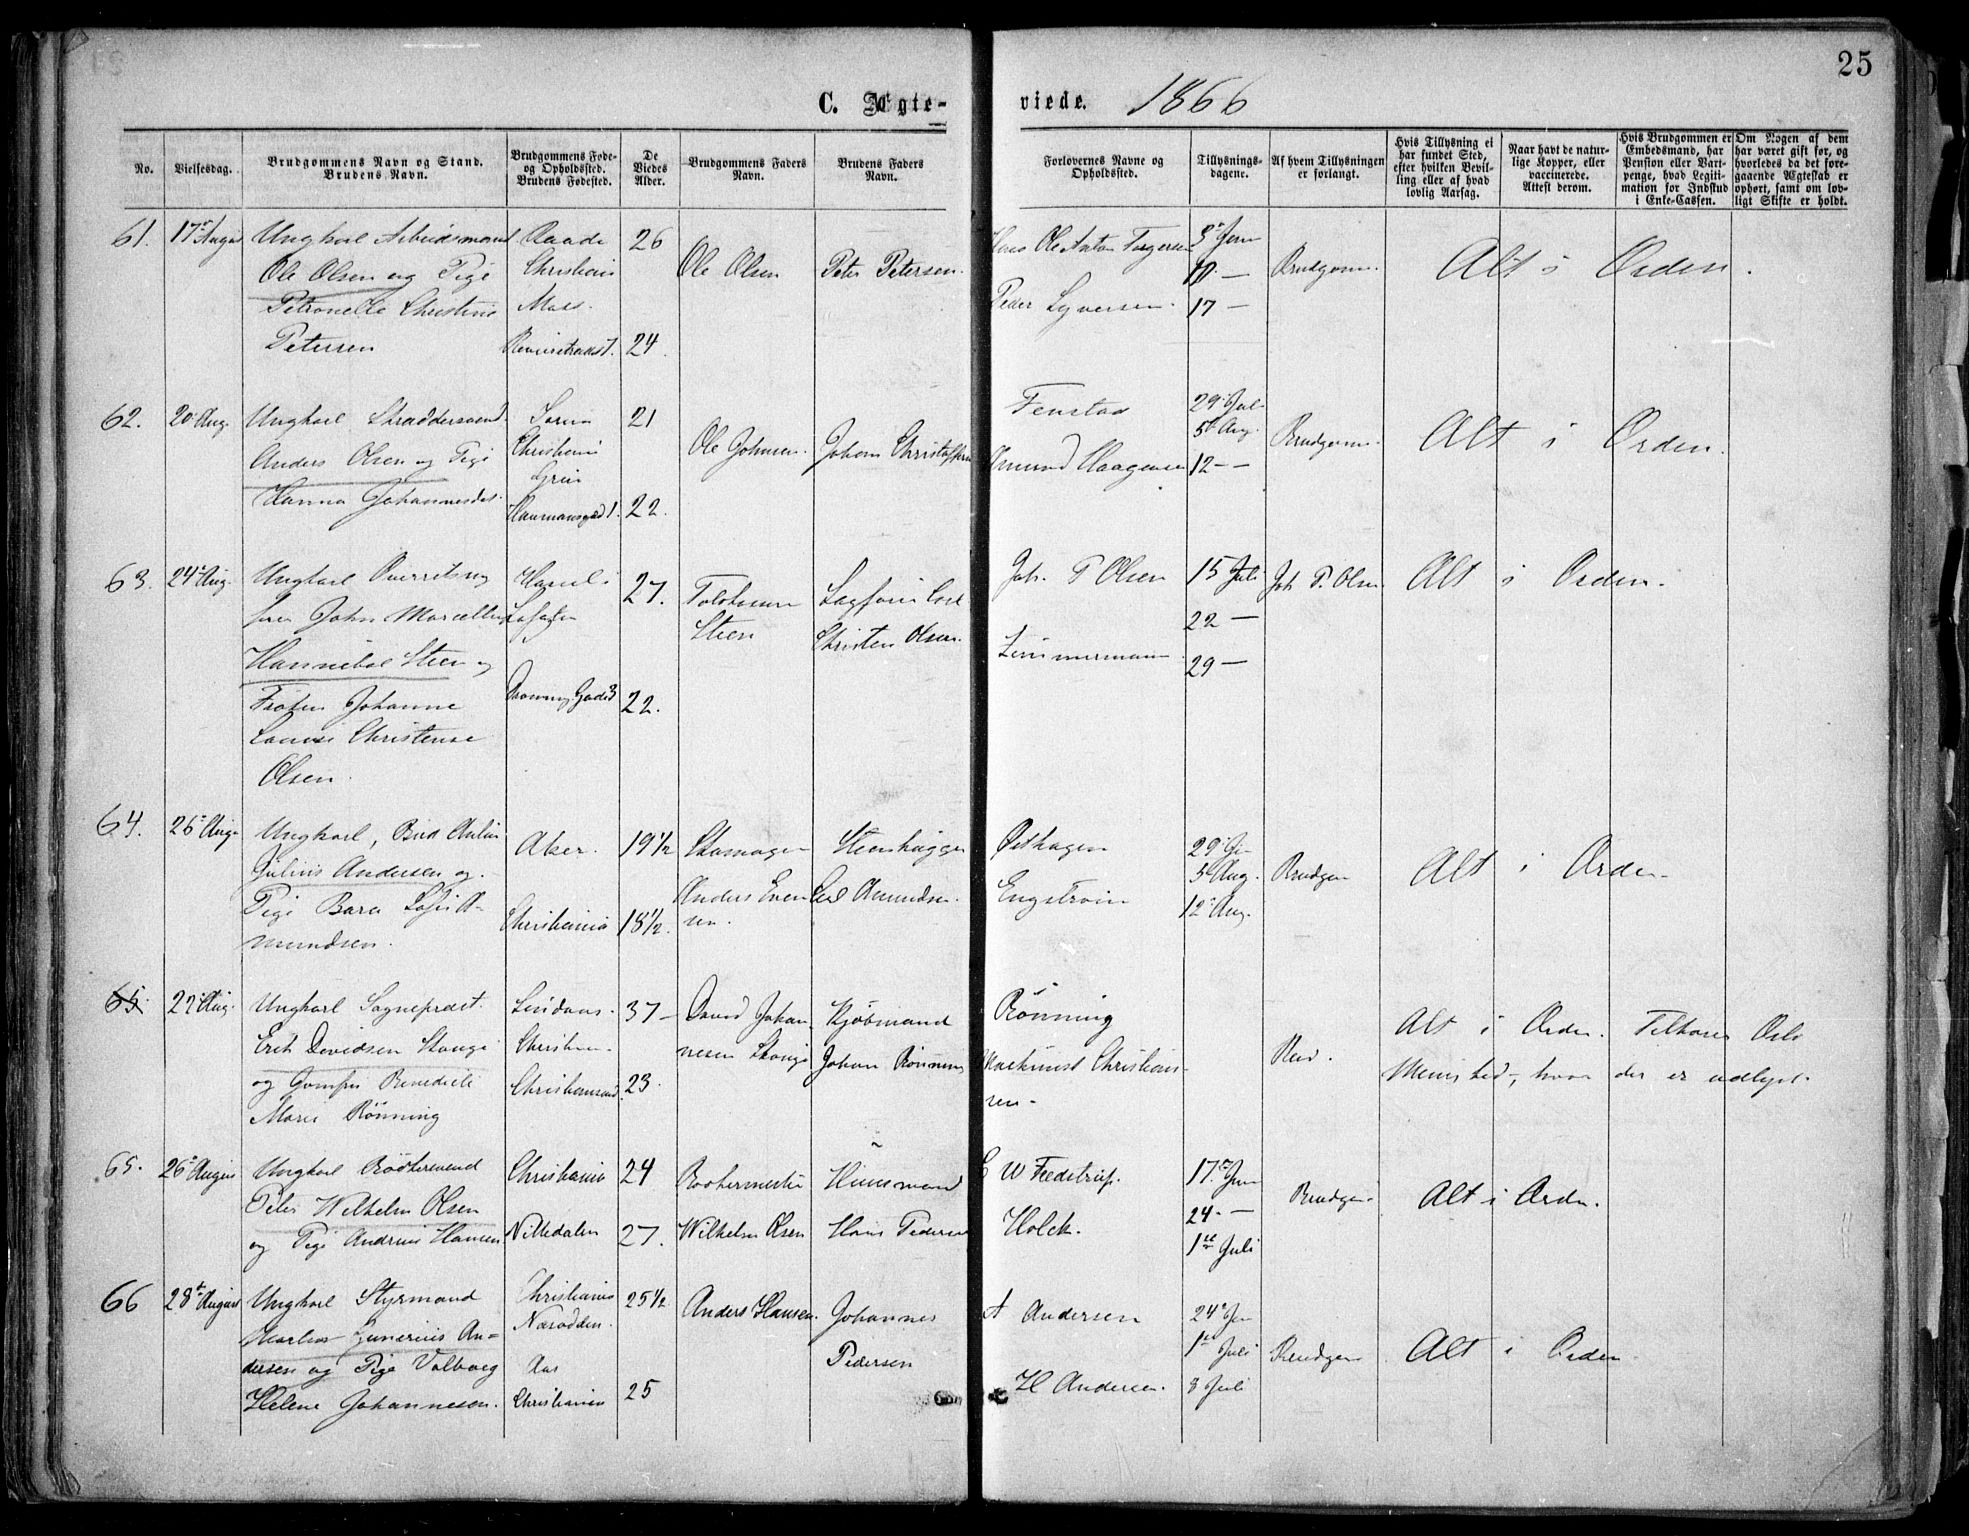 25
C. Ægte-
viede. 1866
No.
Vielsesdag.
Brudgommens Navn og Stand.
Brudens Navn.
Brudgommens Føde-
og Opholdssted.
Brudens Fødested.
De
Viedes
Alder.
Brudgommens Faders
Navn.
Brudens Faders
Navn.
Forlovernes Navne og
Opholdssted.
Tillysnings-
dagene.
Af hvem Tillysningen
er forlangt.
Hvis Tillysning ei
har fundet Sted,
efter hvilken Bevil-
ling eller af hvad
lovlig Aarsag.
Naar havt de natur-
lige Kopper, eller
vaccinerede.
Attest derom.
Hvis Brudgommen er
Embedsmand, har
Pension eller Vart-
penge, hvad Legiti-
mation for Indskud
i Enke-Cassen.
Om Nogen af dem
har været gift før, og
hvorledes da det fore-
gaaende Ægteskab er
ophørt, samt om lov-
ligt Skifte er holdt.
61.
17 August
Ungkarl Arbeidsmand
Ole Olsen og Pige
Petronelle Christine
Petersen
Raade
Christiania
Moss.
26
24
Ole Olsen
Peter Petersen.
Ole Anton
Peder Syversen.
3 Juni
10 —
17 —
Brudgom.
Alt i Orden.
62.
20 Aug.
Ungkarl Skræddersvend
Anders Olsen og Pige
Hanna Johannesdat.
Christiania
21
22.
Ole Johnsen.
Johan Christoffersen
Fenstad
Amund Haagensen
29 Juli
5 Aug.
12 —
Brudgom.
Alt i Orden.
63.
24 Aug.
Ungkarl Overretssag
fører John Marcellius
Hannibal Steen og
Frøken Johanne
Louise Christense
Olsen.
Lofoten
Dronning Gade 3
27.
22.
Steen
Sagfører Carl
Christen Olsen.
Joh. P Olsen
Zimmermann
15 Juli
22 —
29 —
Joh. P. Olsen
Alt i Orden.
64.
26 Aug.
Ungkarl, Bud Anton
Julius Andersen og
Pige Bara Sofie A-
mundsen.
Aker.
Christiania
19 1/2
18 1/2.
Skomager
Anders Even
sen.
Steenhugger
Carl Amundsen.
Østhagen
Engstrøm
29 Juli
5 Aug.
12 Aug.
Brudgom
Alt i Orden.
65.
22 Aug.
Ungkarl Sognepræst
Erik Davidsen Stange
og Jomfru Benedicte
Marie Rönning
Lindaas.
Christian.
Christiansand.
37 —
23.
David Johan
nesen Stange
Kjöbmand
Johan Rönning
Rönning
Christians-
sen.
Alt i Orden. Tilhører Oslo
Menighed, hvor der er udlyst.
65.
26 August
Ungkarl Rødkersvend
Peter Wilhelm Olsen
og Pige Andrine Hansen
Christiania
Nittedalen
24
27.
Bødkermester
Wilhelm Olsen
Huusmand
Hans Pedersen
C W Feedstrup.
Holck.
17 Juni
24 —
1te Juli
Brudgom.
Alt i Orden.
66
28 August
Ungkarl Styrmand
Gunerius An=
dersen og Pige Valborg
Helene Johannesen.
Christiania
Næsodden.
Aas
Christiania
25 1/2
25
Anders Hansen.
Johannes
Pedersen
A Andersen
H Andersen.
24 Juni
1te Juli
8 Juli
Brudgom
Alt i Orden.